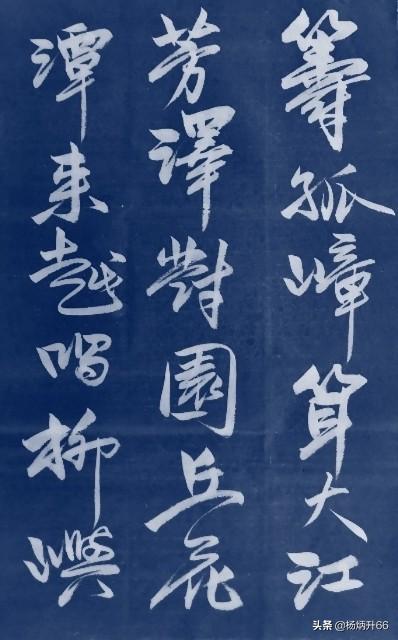 籌孤嶂大江
芳澤對園丘花
潭来越唱柳嶼
头条 @杨炳升66